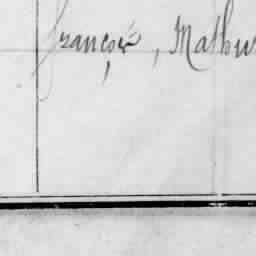 françois, Mathur